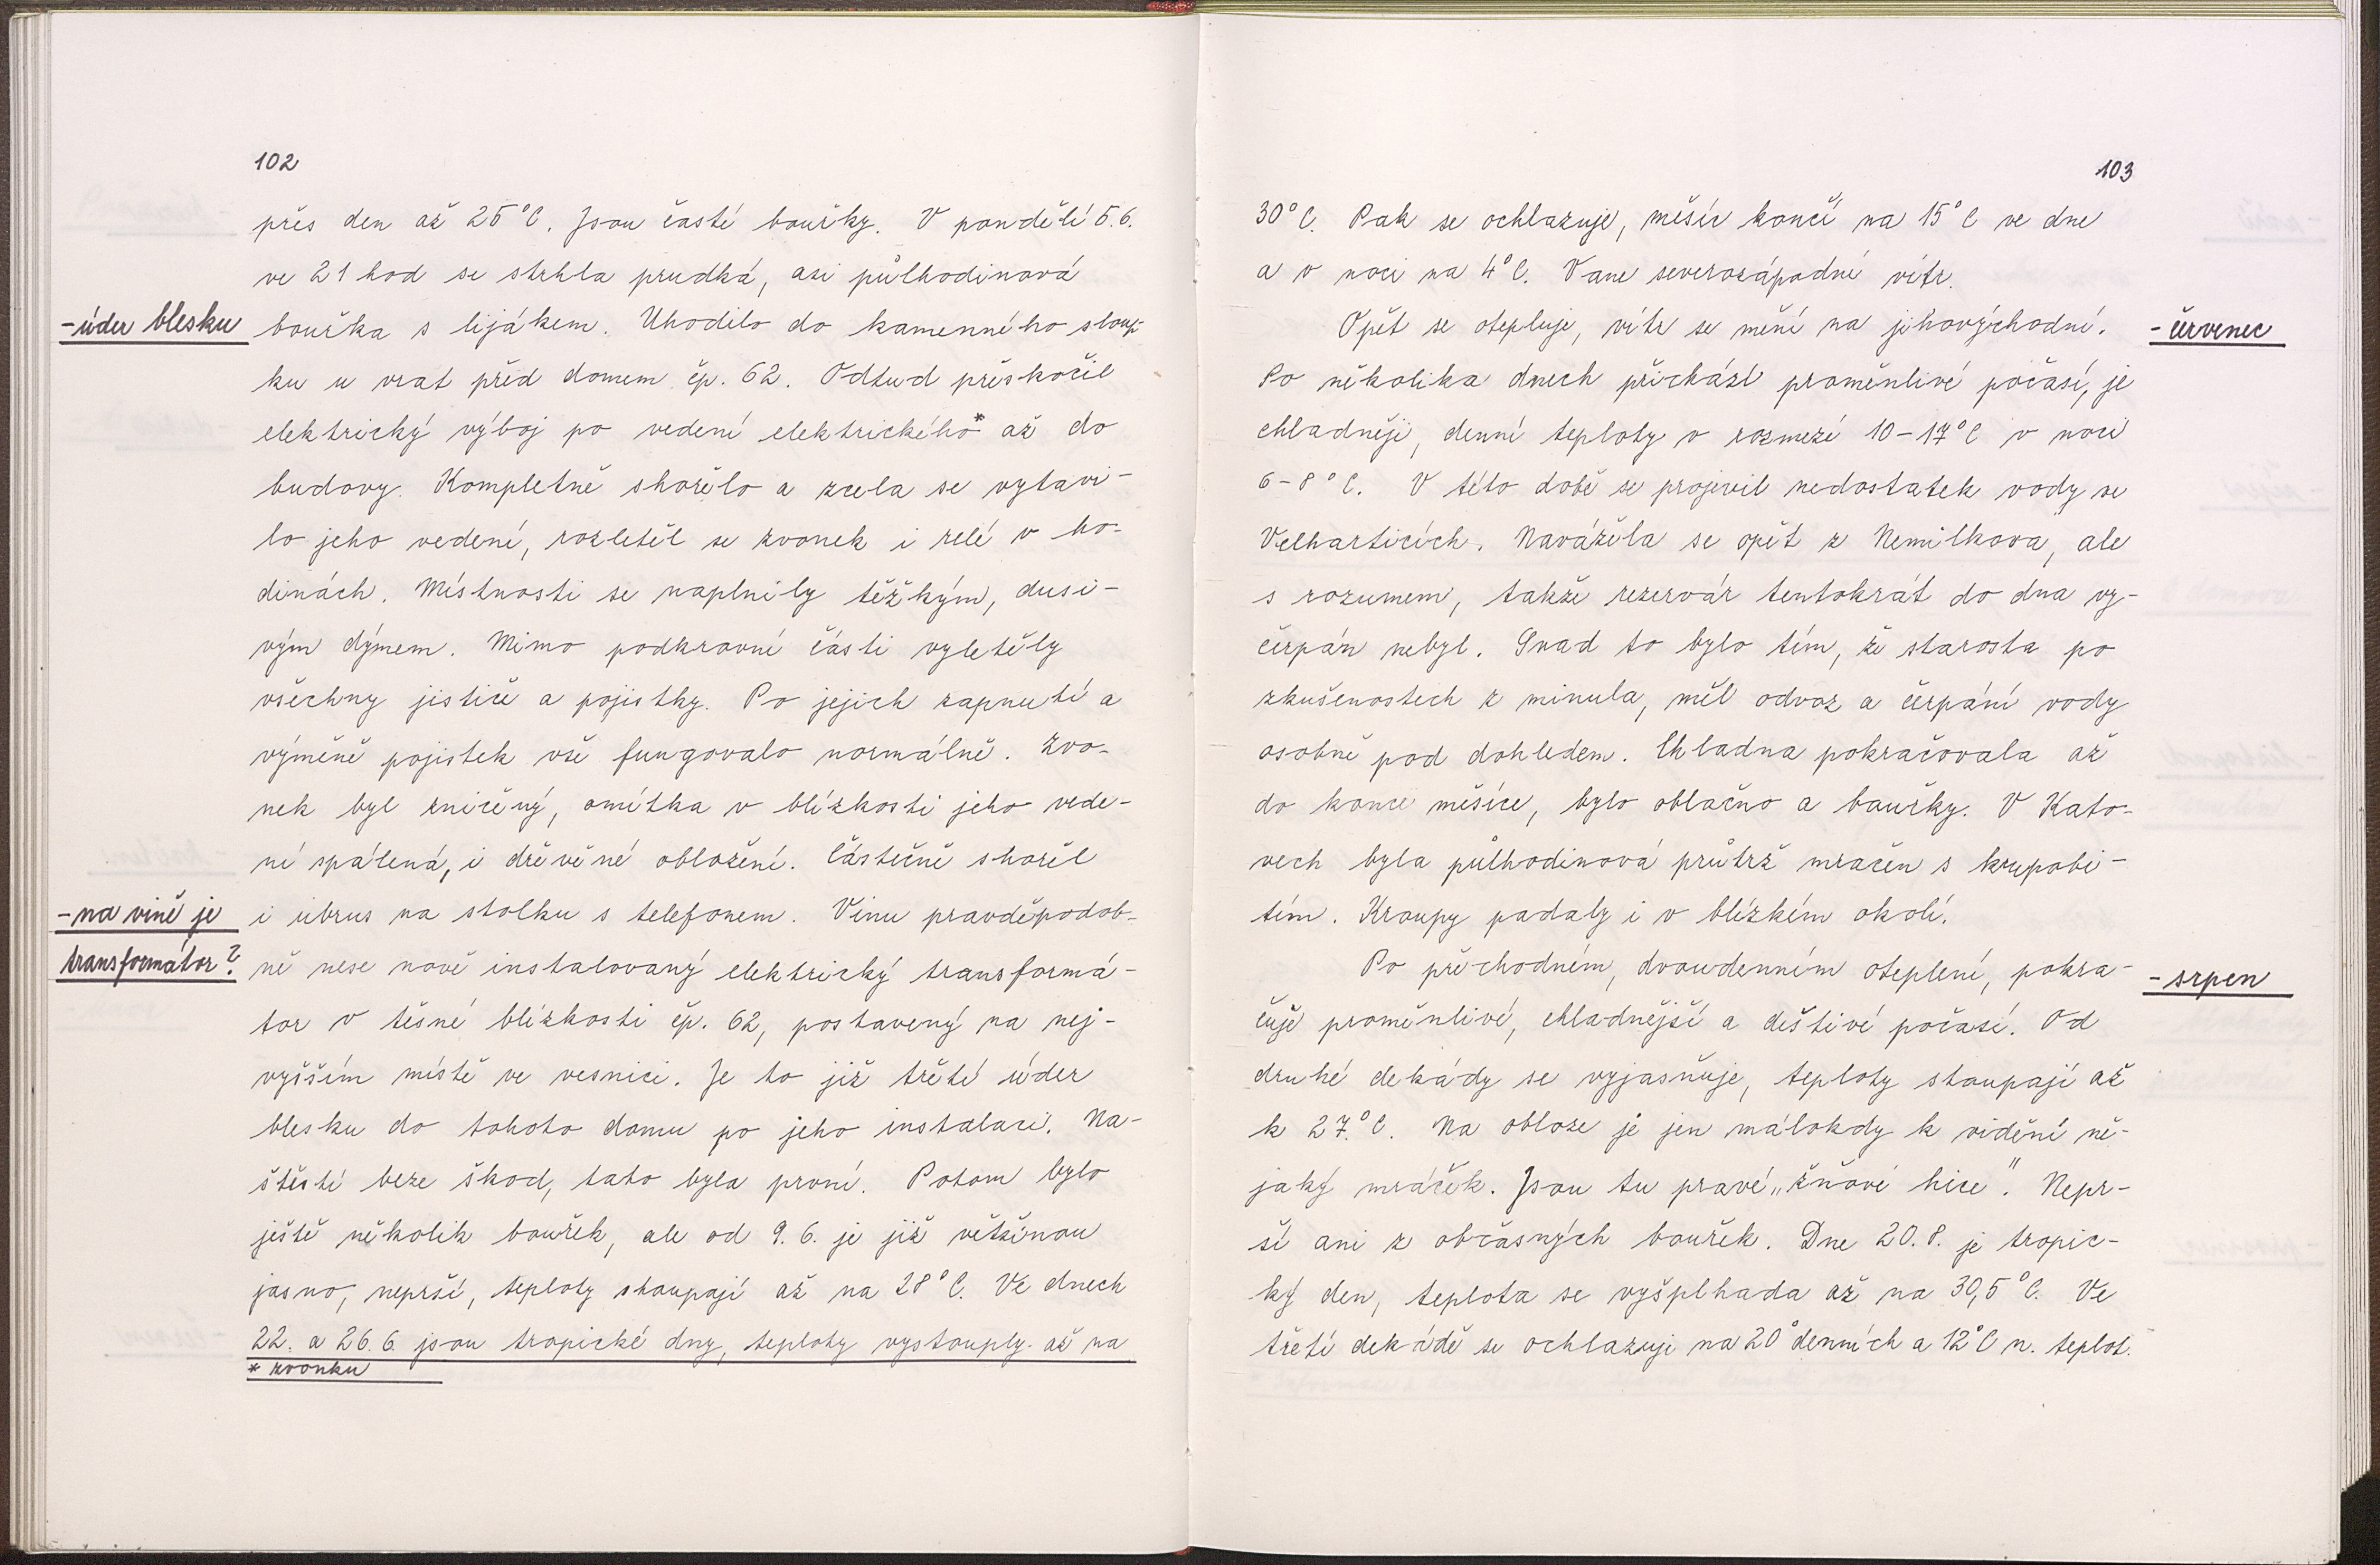 102
přes den až 25°C. Jsou časté bouřky. V pondělí 5.6.
ve 21 hod se strhla prudká, asi půlhodinová
-úder blesku
bouřka s lijákem. Uhodilo do kamenného sloup-
ku u vrat před domem čp. 62. Odtud přeskočil
elektrický výboj po vedení elektrického* až do
budovy. Kompletně shořelo a zcela se vytavi-
lo jeho vedení, rozletěl se zvonek i relé v ho-
dinách. Místnosti se naplnily těžkým, dusi-
vým dýmem. Mimo podkrovní části vyletěly
všechny jističe a pojistky. Po jejich zapnutí a
výměně pojistek vše fungovalo normálně. Zvo-
nek byl zničený, omítka v blízkosti jeho vede-
ní spálená, i dřevěné obložení. Částečně shořel
-na vině je
transformátor?
i ubrus na stolku s telefonem. Vinu pravděpodob-
ně nese nově instalovaný elektrický transformá-
tor v těsné blízkosti čp. 62, postavený na nej-
vyšším místě ve vesnici. Je to již třetí úder
blesku do tohoto domu po jeho instalaci. Na-
štěstí beze škod, tato byla první. Potom bylo
ještě několik bouřek, ale od 9.6. je již většinou
jasno, neprší, teploty stoupají až na 28°C. Ve dnech
22. a 26.6. jsou tropické dny, teploty vystouply až na
* zvonku
103
30°C. Pak se ochlazuje, měsíc končí na 15°C ve dne
a v noci na 4°C. Vane severozápadní vítr.
Opět se otepluje, vítr se mění na jihovýchodní.
-červenec
Po několika dnech přichází proměnlivé počasí, je
chladněji, denní teploty v rozmezí 10-17°C v noci
6-8°C. V této době se projevil nedostatek vody ve
Velharticích. Navážela se opět z Nemilkova, ale
s rozumem, takže rezervár tentokrát do dna vy-
čerpán nebyl. Snad to bylo tím, že starosta po
zkušenostech z minula, měl odvoz a čerpání vody
osobně pod dohledem. Chladna pokračovala až
do konce měsíce, bylo oblačno a bouřky. V Kato-
vech byla půlhodinová průtrž mračen s krupobi-
tím. Kroupy padaly i v blízkém okolí.
Po přechodném, dvoudenním oteplení, pokra-
-srpen
čuje proměnlivé, chladnější a deštivé počasí. Od
druhé dekády se vyjasňuje, teploty stoupají až
k 27.°C. Na obloze je jen málokdy k vidění ně-
jaký mráček. Jsou tu pravé „žňové hice". Nepr-
ší ani z občasných bouřek. Dne 20.8. je tropic-
ký den, teplota se vyšplhada až na 30,5°C. Ve
třetí dekádě se ochlazuje na 20° denních a 12°C n. teplot.